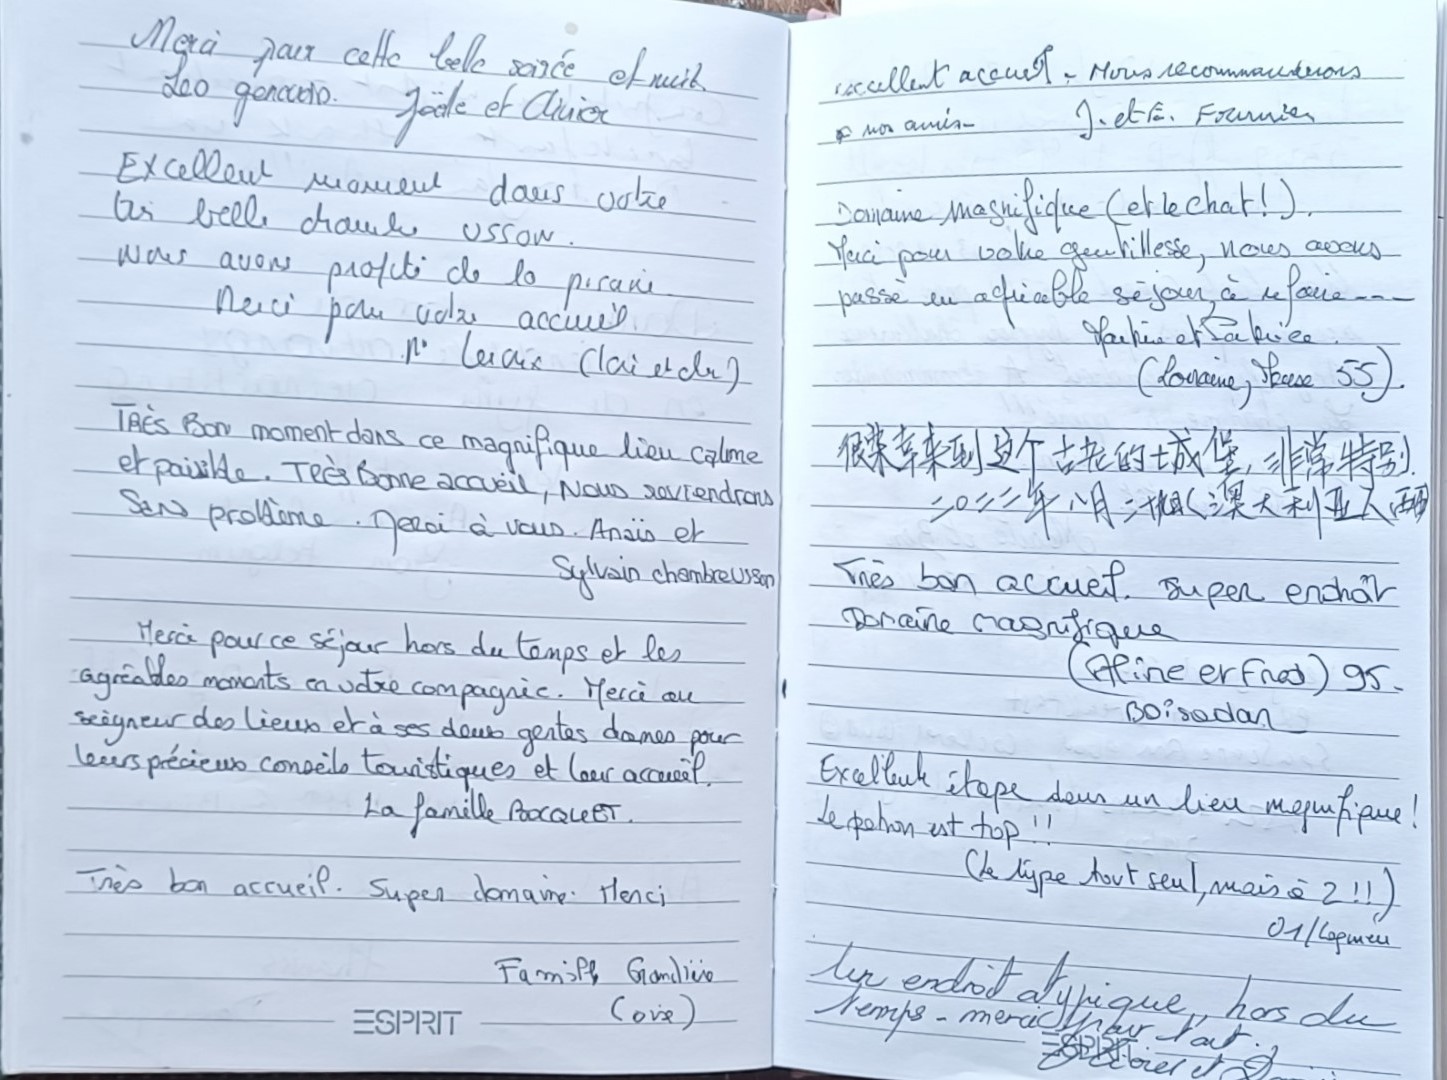 Merci pour cette belle soirée et nuit
Joële et
Excellent moment dans votre
très belle chambre USSON.
Nous avons profité de la piscine
Merci pour votre accueil.
(Loir et cher)
TRÈS Bon moment dans ce magnifique lieu calme
et paisible. TRÈS Bonne accueil, Nous reviendrons
SANS problème. Merci à vous. Anaïs et
Sylvain chambre USSON
Merci pour ce séjour hors du temps et les
agréables moments en votre compagnie. Merci au
seigneur des lieux et à ses deux gentes dames pour
leurs précieux conseils touristiques et leur accueil.
La famille BOCQUET.
Très bon accueil. Super domaine. Merci
Famille
(oise)
ESPRIT
Excellent accueil - Nous recommanderons
à nos amis - J. et E. Fournier
Domaine magnifique (et le chat!).
Merci pour votre gentillesse, nous avons
passé un agréable séjour, à refaire ---
et Patrice.
(Lorraine, Meuse 55).
很荣幸来到这个古老的城堡, 非常特别.
二〇二三年八月 (澳大利亚人
Très bon accueil. Super endroit
Domaine magnifique
(Aline et Fred) 95.
Excellente étape dans un lieu magnifique!
Le patron est top!!
(Le type tout seul, mais à 2!!)
01/Lagnieu
Un endroit atypique, hors du
temps - merci pour tout.
ESPRIT
et